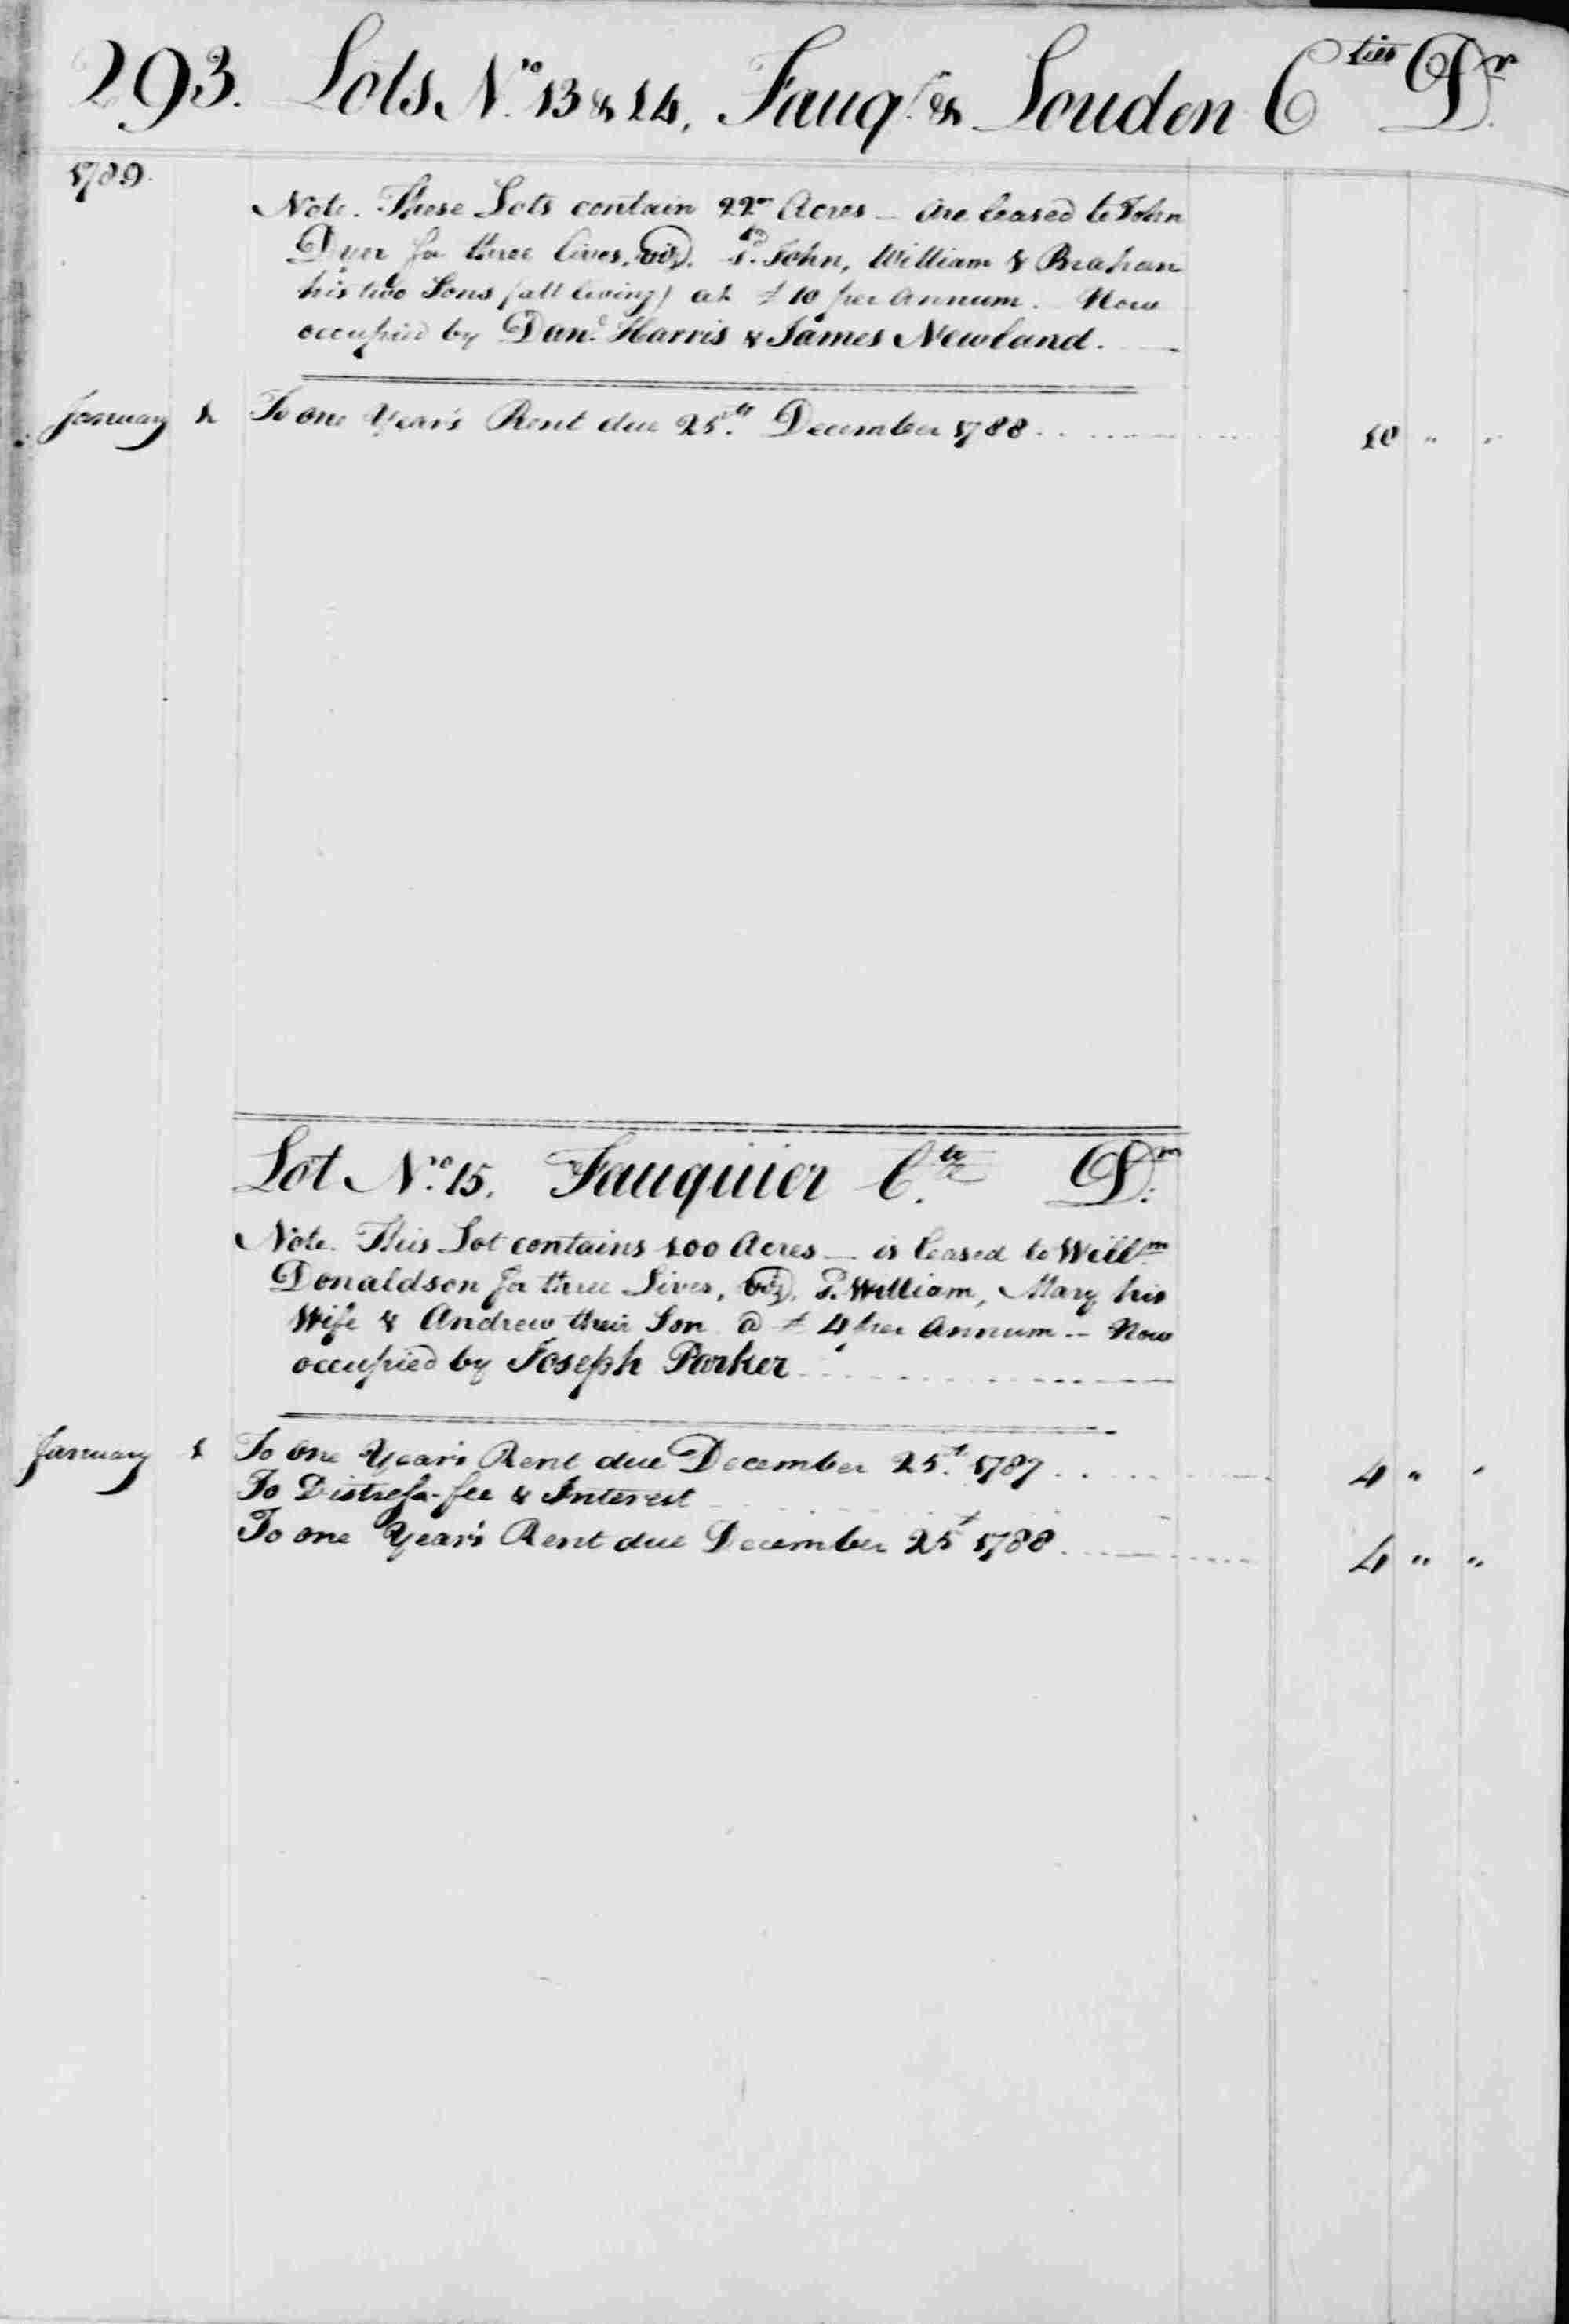 293. Lots N.ro 13 & 14, Fauq.r & Louden Cties Dr.
1789.
Note. These Lots contain 22" Acres — Are leased to John
Dyer for three lives, viz. sd. John, William & Brahan
his two Sons (all living) at £ 10 per Annum. Now
occupied by Danl. Harris & James Newland.
January 1 To one Year's Rent due 25.th December 1788 10 " "
Lot N.ro 15. Fauquier C.ty Dr.
Note. This Lot contains 100 Acres — is leased to Willm
Donaldson for three Lives, viz. sd. William, Mary his
Wife & Andrew their Son @ £ 4 per Annum — Now
occupied by Joseph Parker
January 1 To one Year's Rent due December 25.th 1787 4 " "
To Distress-fee & Interest
To one Year's Rent due December 25th 1788 4 " "